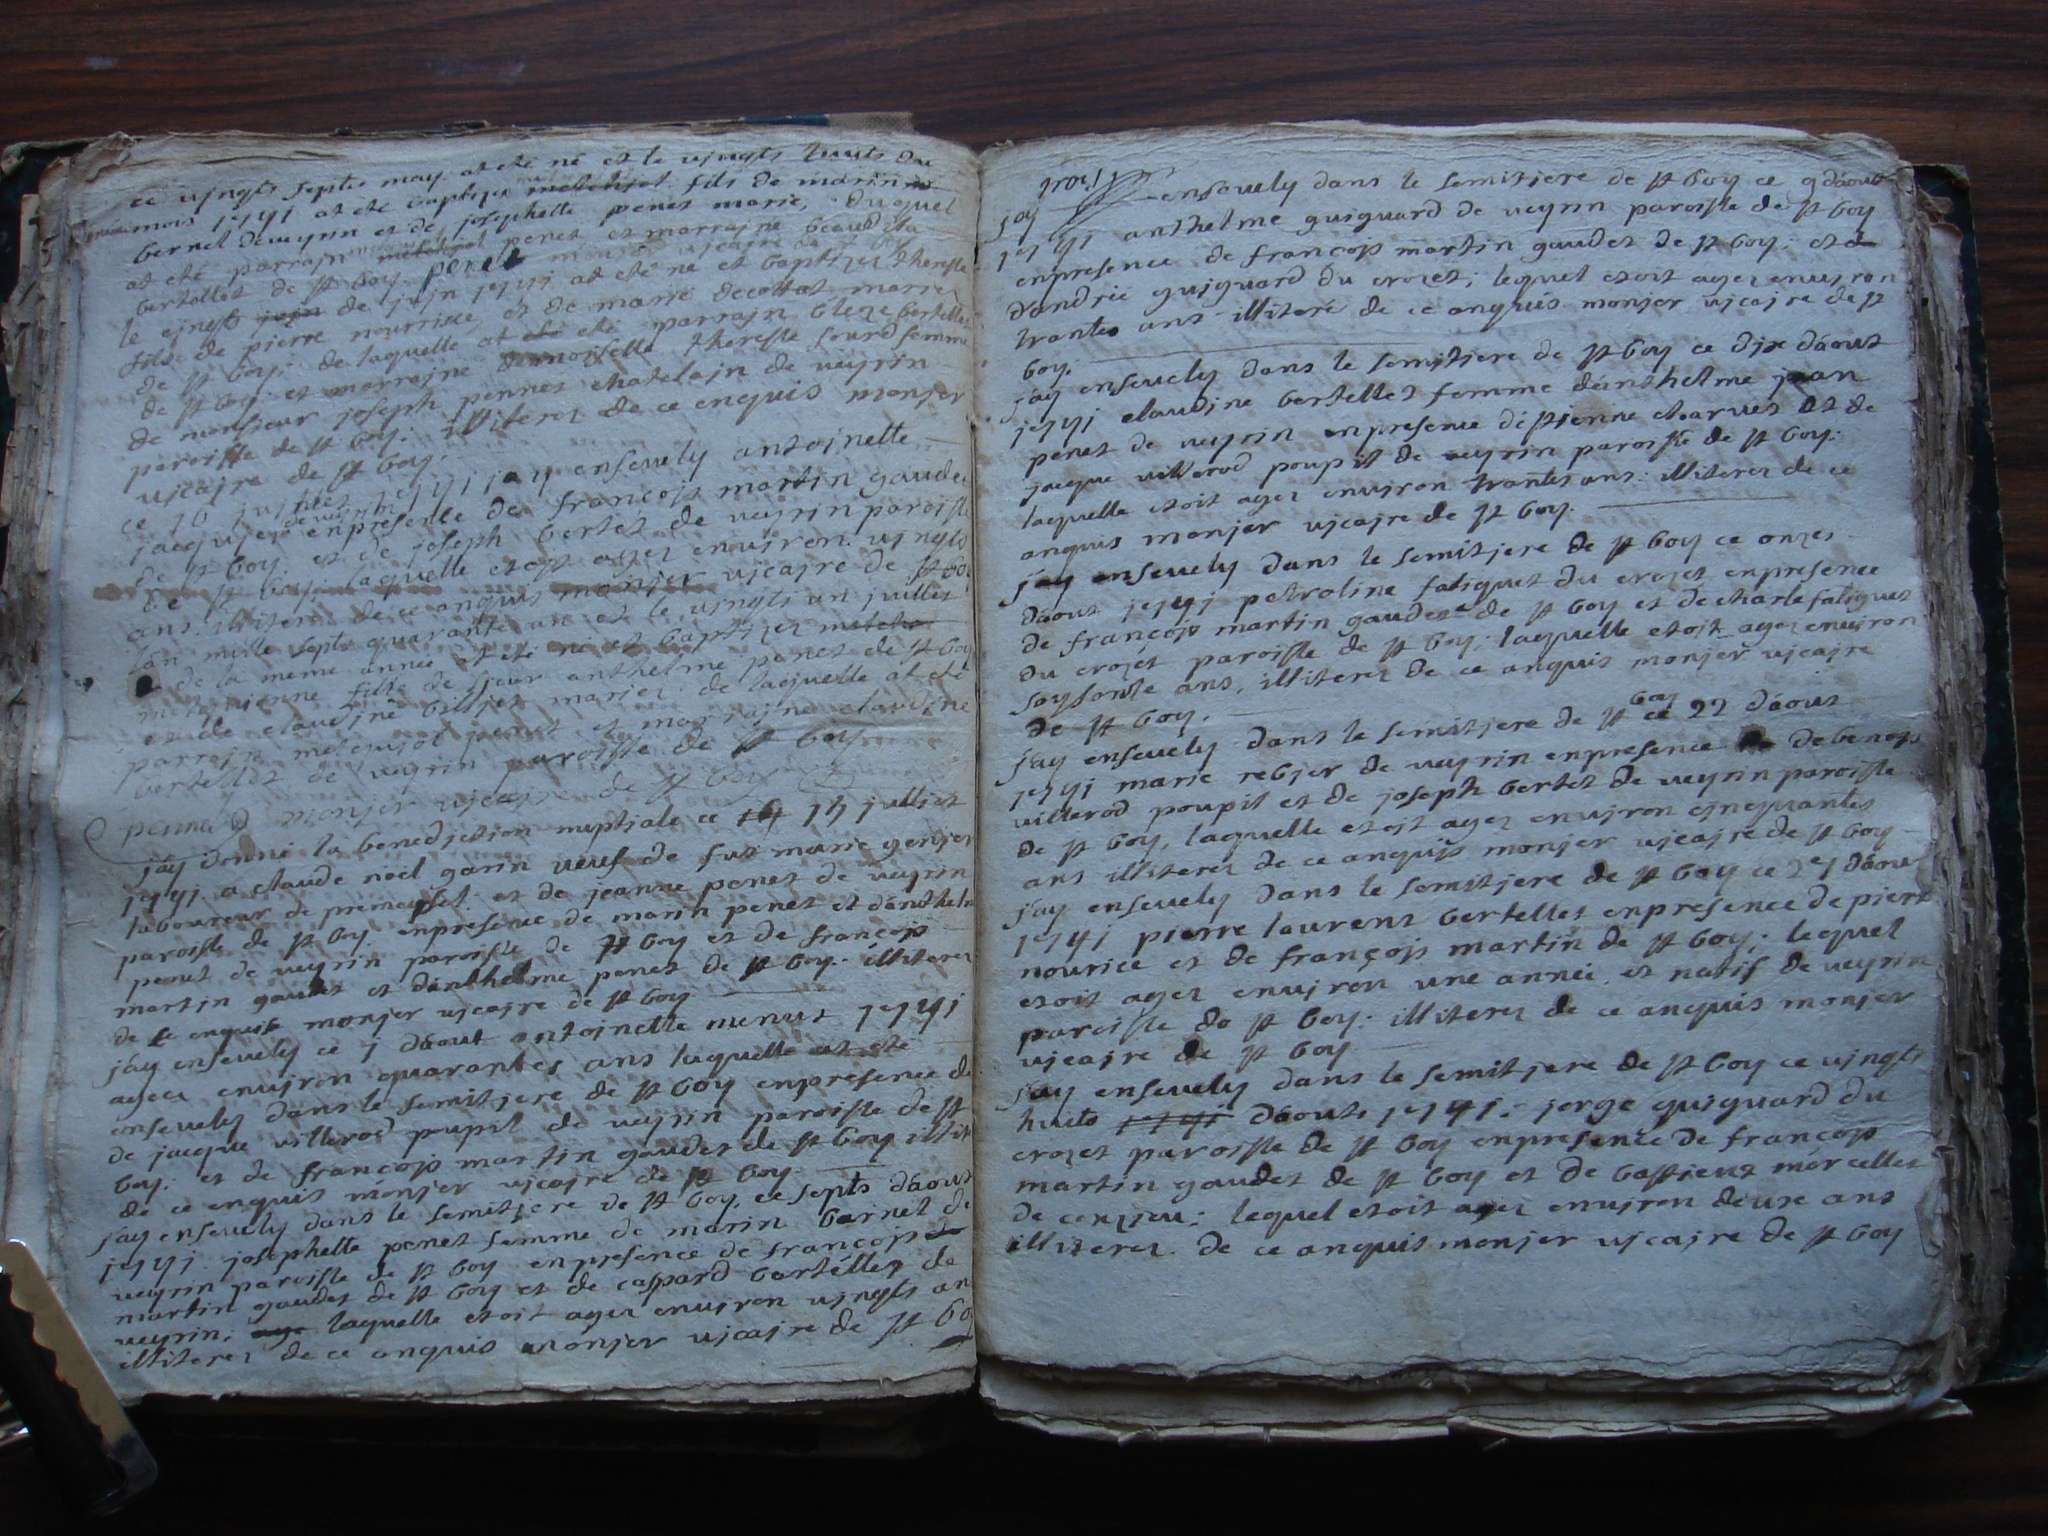 ce vjngts septs may at eté né et le vjngts huits du
mois 1741 at eté baptizer fils de marin
bernet de veyrin et de josephette penet marie, duquel
at eté parrajn penet et marrajne
bertellet de St boy. monjer vjcajre de St boy
le de jujn 1741 at eté né et baptizer theresse
fils de pierre nourrisse et de marie decottat marier
de St boy: de laquelle at eté parrajn bleze bertellet
de St boy: et marrajne demoiselle theresse sourd femme
de monsieur joseph pennet chatelajn de veyrin
paroisse de St boy: illiterez de ce enquis monjer
vjcajre de St boy.
ce 16 juillet 1741 jay ensevely antoinette
jacquier en presence de françojs martin gaudet
de St boy. et de joseph bertet de veyrin paroisse
de St boy. laquelle etojt agez environ vjngts
ans. illiterez de ce anquis monjer vjcajre de St boy
lan mille septs quarante un et le vjngts un juillet
de la meme année at eté né et baptizer
fille de sjeur anthelme penet de St boy
et de claudjne marier. de laquelle at eté
parrajn penet et marrajne claudjne
bertellet de veyrin paroisse de St boy
pennet monjer vjcajre de St boy
jay donné la benedjction nuptjale ce 14 17 julliet
1741 a claude noel garin veuf de fut marie genjer
laboureur de et de jeanne penet de veyrin
paroisse de St boy. en presence de marin penet et danthelm
penet de veyrin paroisse de St boy et de françojs
martin gaudet et danthelme penet de St boy. illiterez
de ce enquis monjer vjcajre de St boy
jay ensevely ce j daout antoinette menut 1741
agez environ quarantes ans laquelle at eté
ensevely dans le semitjere de St boy enpresence de
de jacque villerod pupit de veyrin paroisse de St
boy: et de françojs martin gaudet de St boy illit
de ce enquis monjer vjcajre de St boy.
jay ensevely dans le semitjere de St boy, ce septs daout
1741 josephette penet femme de marin bernet de
veyrin paroisse de St boy enpresence de françojs de
martin gaudet de St boy et de caspard bertellet de
veyrin; laquelle etoit agez environ vjngts an
illiterez de ce anquis monjer vjcajre de St boy
jay ensevely dans le semitjere de St boy ce 9 daout
1741 anthelme guiguard de veyrin paroisse de St boy
enpresence de françojs martin gaudet de St boy; et d
dandrie guiguard du crozet; lequel etoit agez environ
trantes ans illiteré de ce anquis monjer vjcajre de St
boy.
jay ensevely dans le semitjere de St boy ce djx daout
1741 claudjne bertellet femme danthelme jean
penet de veyrin enpresence detienne charvet et de
jacque villerod poupit de veyrin paroisse de St boy:
laquelle etoit agez environ trantes ans: illiterez de ce
anquis monjer vjcajre de St boy.
jay ensevely dans le semitjere de St boy ce onzes
daout 1741 petroline fatiguet du crozet enpresence
de françojs martin gaudet de St boy et de charle fatiguet
du crozet paroisse de St boy; laquelle etoit agez environ
soysante ans, illiterez de ce anquis monjer vjcajre
de St boy.
jay ensevely dans le semitjere de St boy ce 22 daout
1741 marie rebjer de veyrin enpresence de benojs
villerod poupit et de joseph bertet de veyrin paroisse
de St boy, laquelle etojt agez environ cjnquantes
ans illiterez de ce anquis monjer vjcajre de St boy
jay ensevely dans le semitjere de St boy ce 27 daout
1741 pierre laurent bertellet enpresence de piere
nourice et de françojs martin de St boy; lequel
etoit agez environ une année. et natif de veyrin
paroisse de St boy: illiterez de ce anquis monjer
vjcajre de St boy
jay ensevely dans le semitjere de St boy ce vjngts
huits 1741 daouts 1741. jorge guiguard du
crozet paroisse de St boy enpresence de françojs
martin gaudet de St boy et de bastient marcellet
de ceyzieu; lequel etoit agez environ deuxe ans
illiterez. de ce anquis monjer vjcajre de St boy